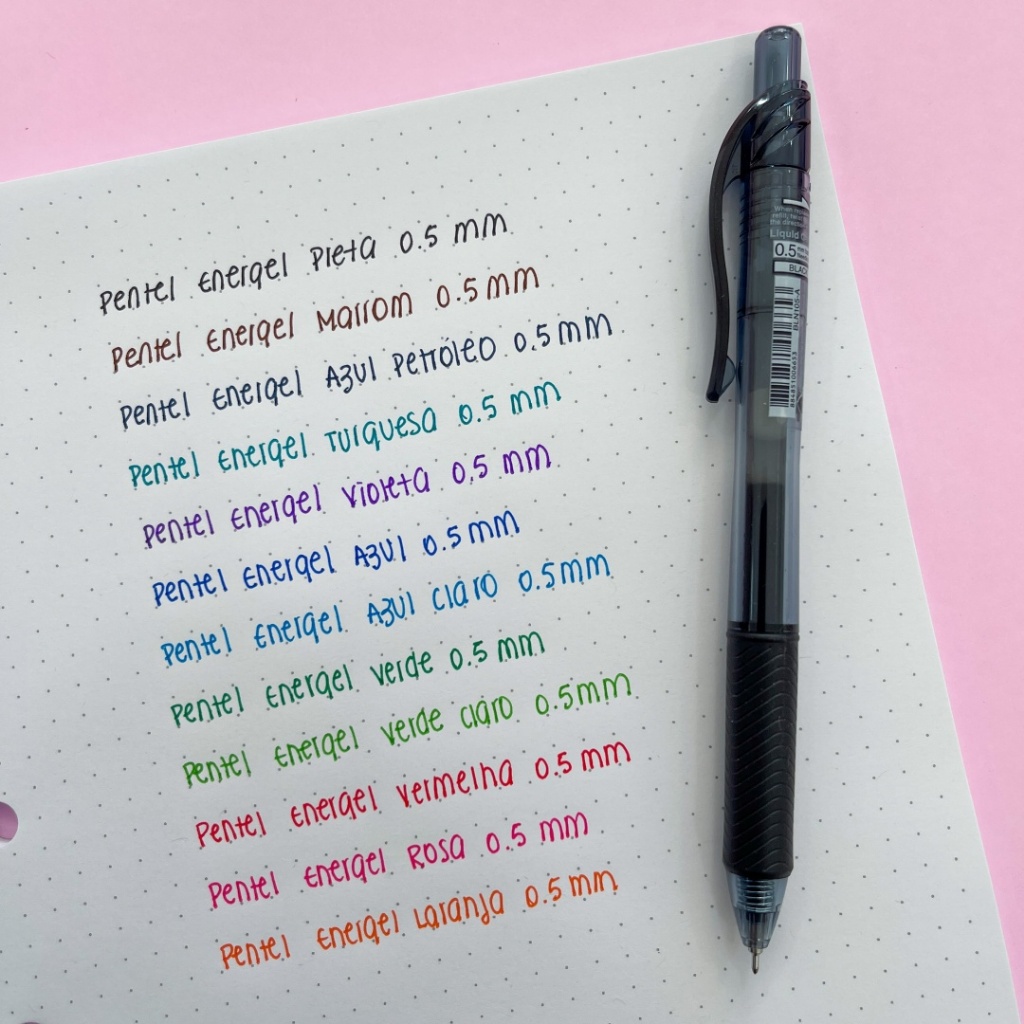 Pentel Energel Preta 0.5 mm
Pentel Energel Marrom 0.5 mm
Pentel Energel Azul Petróleo 0.5 mm
Pentel Energel Turquesa 0.5 mm
Pentel Energel Violeta 0.5 mm
Pentel Energel Azul 0.5 mm
Pentel Energel Azul Claro 0.5 mm
Pentel Energel Verde 0.5 mm
Pentel Energel Verde Claro 0.5 mm
Pentel Energel Vermelha 0.5 mm
Pentel Energel Rosa 0.5 mm
Pentel Energel Laranja 0.5 mm
Liquid
0.5
BLAC
BLN105-A